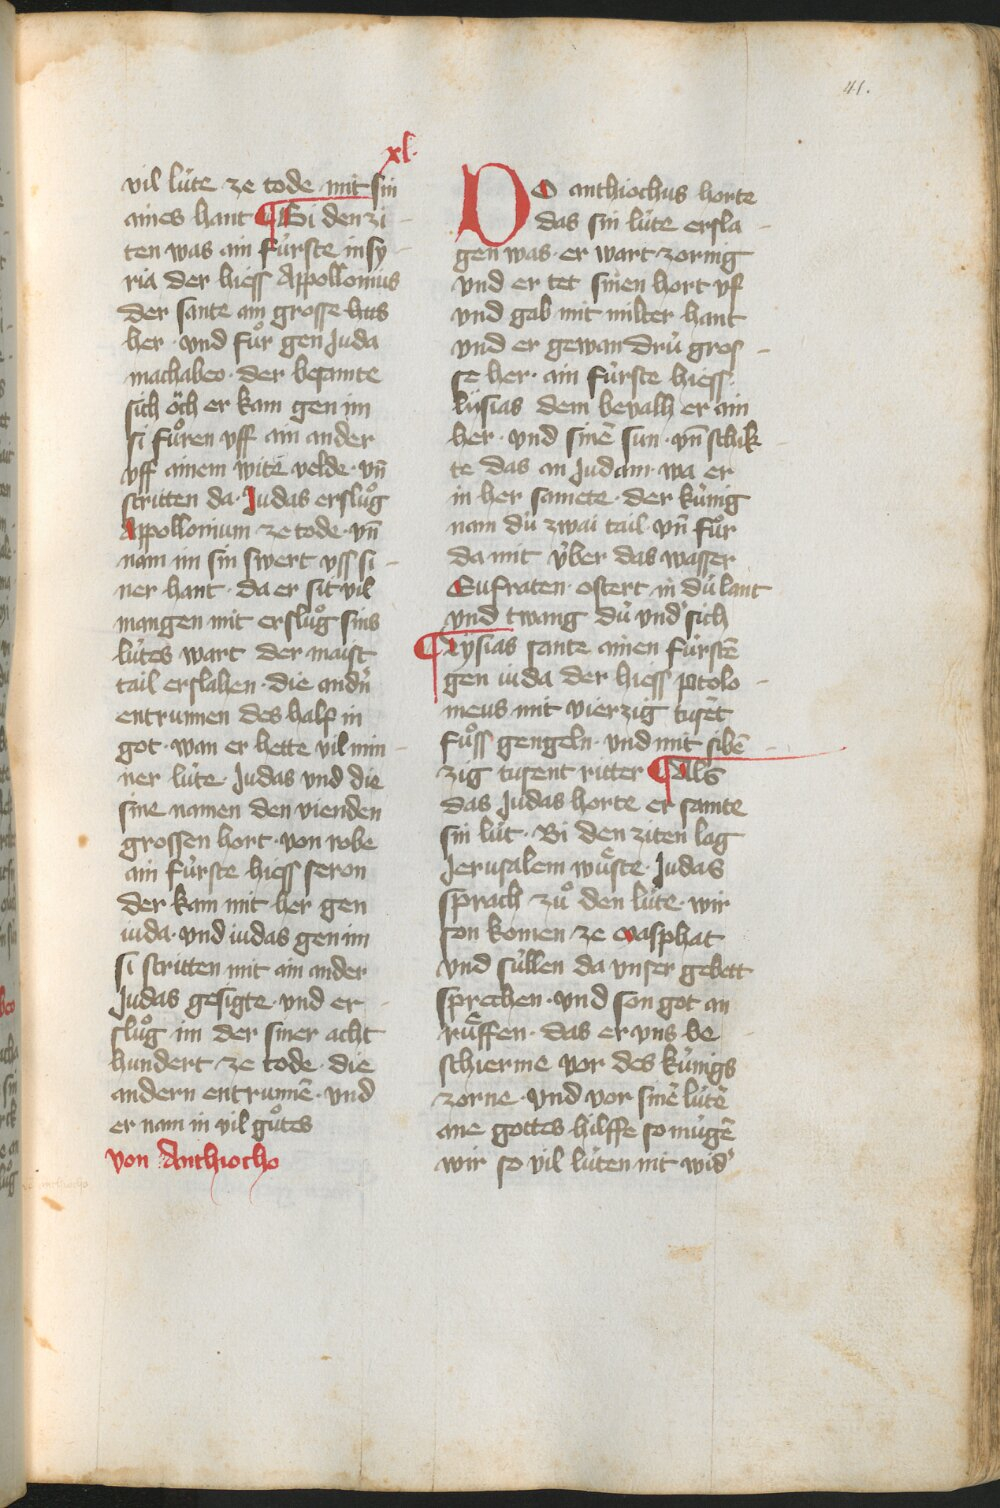 41.
xl.
vil lúte ze tode mit sin
aines hant ¶ Bi den zi
ten was ain fúrste in sy
ria der hiess Appollonius
der sante ain grosse hus
her · vnd fuͦr gen Juda
machabeo · der besamte
sich oͤch er kam gen im
si fuͦren vff ain ander
vff ainem witē velde · vn̄
stritten da · Judas ersluͦg
Appollonium ze tode · vn̄
nam im sin swert vss si
ner hant · da er sit vil
mangen mit ersluͦg sins
lútes wart der maist
tail erslahen · die andn̄
entrunnen des half in
got · wan er hette vil min
ner lúte · Judas vnd die
sine namen den vienden
grossen hort · von robe
ain fúrste hiess seron
der kam mit her gen
iuda · vnd iudas gen im
si stritten mit ain ander
Judas gesigte · vnd er
sluͦg im der siner acht
hundert ze tode · die
andern entrunnē · vnd
er nam in vil guͦtes
von Anthiocho
DO anthiochus horte
das sin lúte ersla
gen was · er wart zornig
vnd er tet sinen hort vf
vnd gab mit milter hant
vnd er gewan drú gros
se her · ain fúrste hiess
lysias dem bevalh er ain
her · vnd sinē sun · vn̄ schik
te das an Judam · wa er
in her samete · der kúnig
nam dú zwai tail · vn̄ fuͦr
da mit v́ber das wasser
Eufraten · ostert in dú lant
vnd twang dú vnd' sich
¶ Lysias sante ainen fúrstē
gen iuda der hiess ptolo
meus mit vierzig tusēt
fuͦss gengeln · vnd mit sibē
zig tusent ritter ¶ Als
das Judas horte er samte
sin lút · Bi den ziten lag
Jerusalem wuͤste · Judas
sprach zuͦ den lúte · wir
son komen ze masphat
vnd súllen da vnser gebett
sprechen · vnd son got an
ruͤffen · das er vns be
schierme vor des kúnigs
zorne · vnd vor sinē lútē
ane gottes hilffe so múgē
wir so vil lúten nit wid'